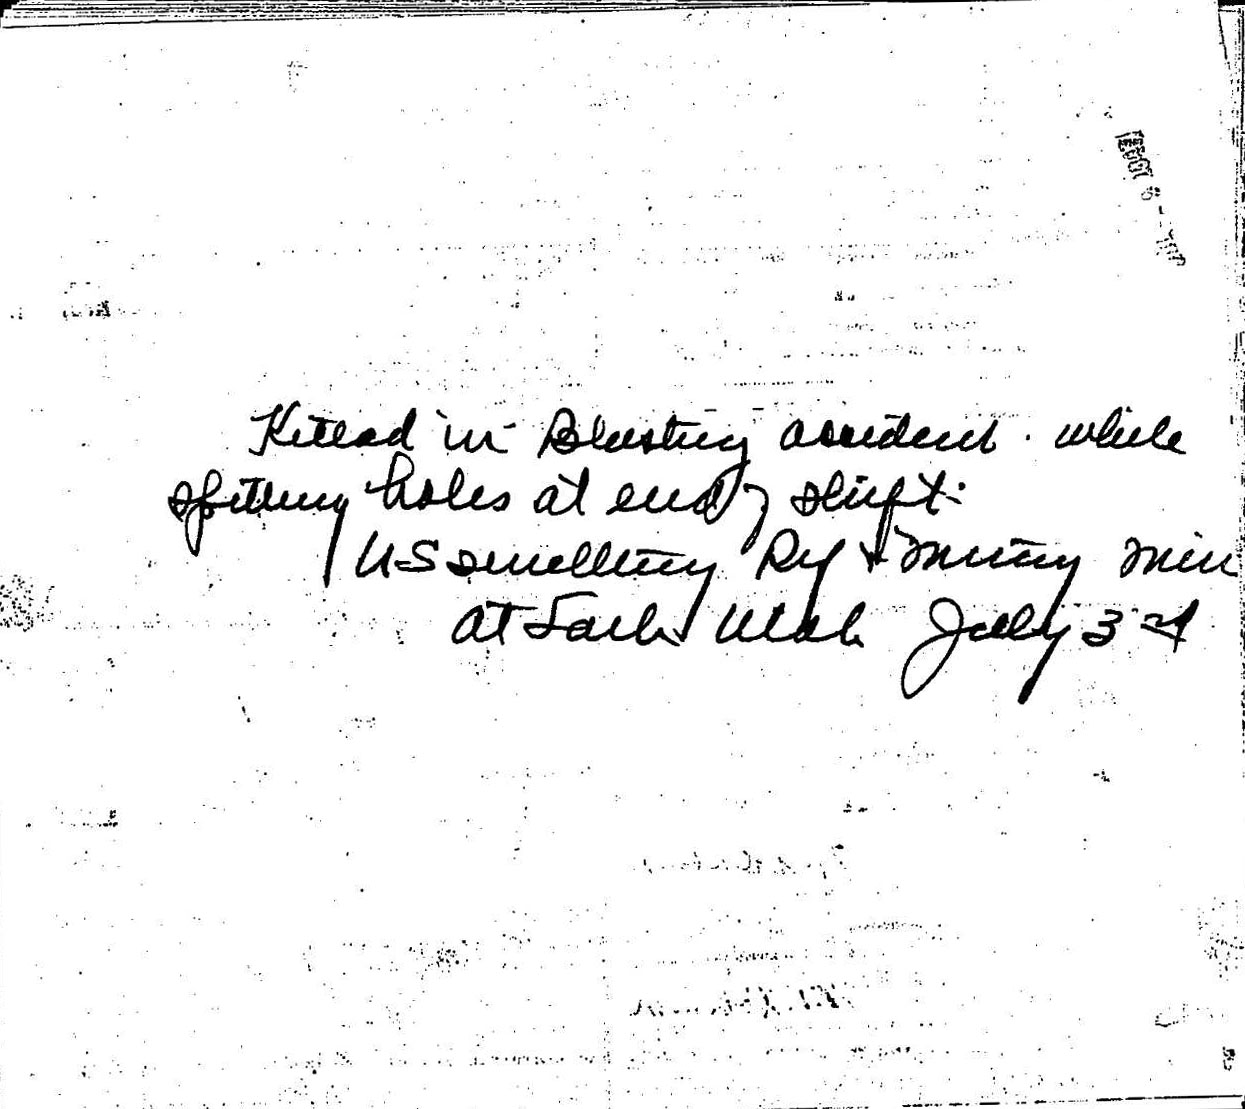 Killed in Blasting accident while
spitting holes at end of shift.
US Smelting Rf & Mining Mine
at Lark Utah July 3rd